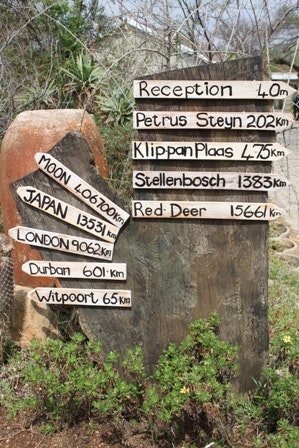 Reception 40m
Petrus Steyn 202Km
Klippan Plaas 4.75Km
Stellenbosch 1383Km
Red Deer 15661Km
MOON 406700Km
JAPAN 13531Km
LONDON 9062Km
Durban 601.Km
Witpoort 65Km